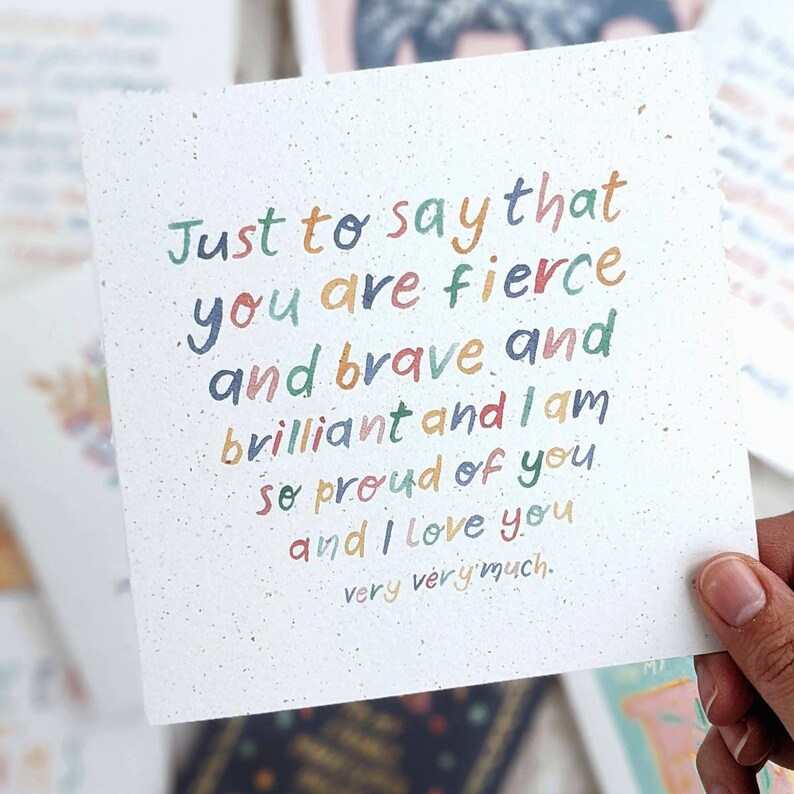 Just to say that
you are fierce
and brave and
brilliant and I am
so proud of you
and I love you
very very much.